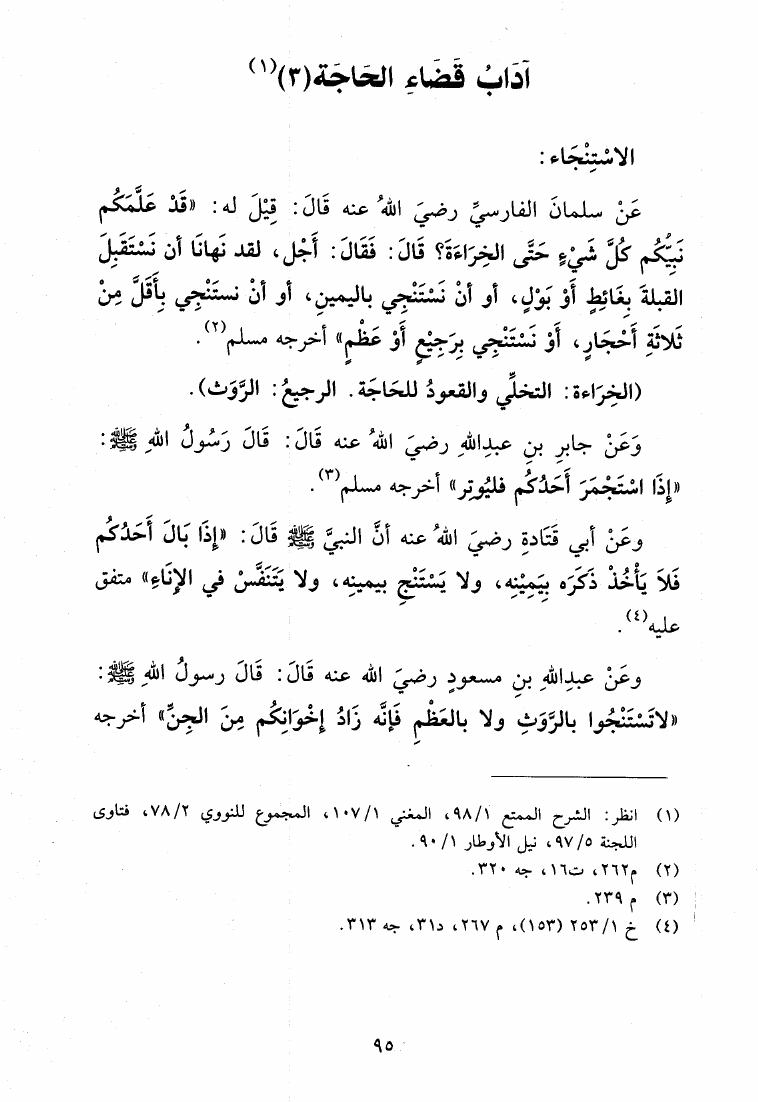 آدَابُ قَضَاءِ الحَاجَة(٣)(١)
الاسْتِنْجَاء:
عَنْ سلمانَ الفارسيِّ رضيَ اللهُ عنه قَالَ: قِيْلَ له: «قَدْ عَلَّمَكُم
نَبِيُّكُم كُلَّ شَيْءٍ حَتَّى الخِرَاءَةَ؟ قَالَ: فَقَالَ: أَجْل، لقد نَهانَا أن نَسْتَقْبِلَ
القبلةَ بِغَائِطٍ أَوْ بَوْلٍ، أو أنْ نَسْتَنْجِي باليمينِ، أو أنْ نستَنْجِي بِأَقَلَّ مِنْ
ثَلاثَةِ أَحْجَارٍ، أَوْ نَسْتَنْجِي بِرَجِيْعٍ أَوْ عَظْمٍ» أخرجه مسلم(٢).
(الخِرَاءة: التخلِّي والقعودُ للحَاجَة. الرجيعُ: الرَّوَث).
وَعَنْ جابرِ بنِ عبدِاللهِ رضيَ اللهُ عنه قَالَ: قَالَ رَسُولُ اللهِ ﷺ:
«إِذَا اسْتَجْمَرَ أَحَدُكُم فليُوتِر» أخرجه مسلم(٣).
وعَنْ أبي قَتَادةِ رضيَ اللهُ عنه أنَّ النبيَّ ﷺ قَالَ: «إِذَا بَالَ أَحَدُكُم
فَلاَ يَأْخُذْ ذَكَرَه بِيَمِيْنِه، ولا يَسْتَنْجِ بيمينِه، ولا يَتَنَفَّسْ في الإِنَاءِ» متفق
عليه(٤).
وعَنْ عبدِاللهِ بنِ مسعودٍ رضيَ الله عنه قَالَ: قَالَ رسولُ اللهِ ﷺ:
«لاتَسْتَنْجُوا بالرَّوَثِ ولا بالعَظْمِ فَإِنَّه زَادُ إِخْوَانِكُم مِنَ الجِنِّ» أخرجه
(١) انظر: الشرح الممتع ٩٨/١، المغني ١٠٧/١، المجموع للنووي ٧٨/٢، فتاوى
اللجنة ٩٧/٥، نيل الأوطار ٩٠/١.
(٢) م٢٦٢، ت١٦، جه ٣٢٠.
(٣) م ٢٣٩.
(٤) خ ٢٥٣/١ (١٥٣)، م ٢٦٧، د٣١، جه ٣١٣.
٩٥